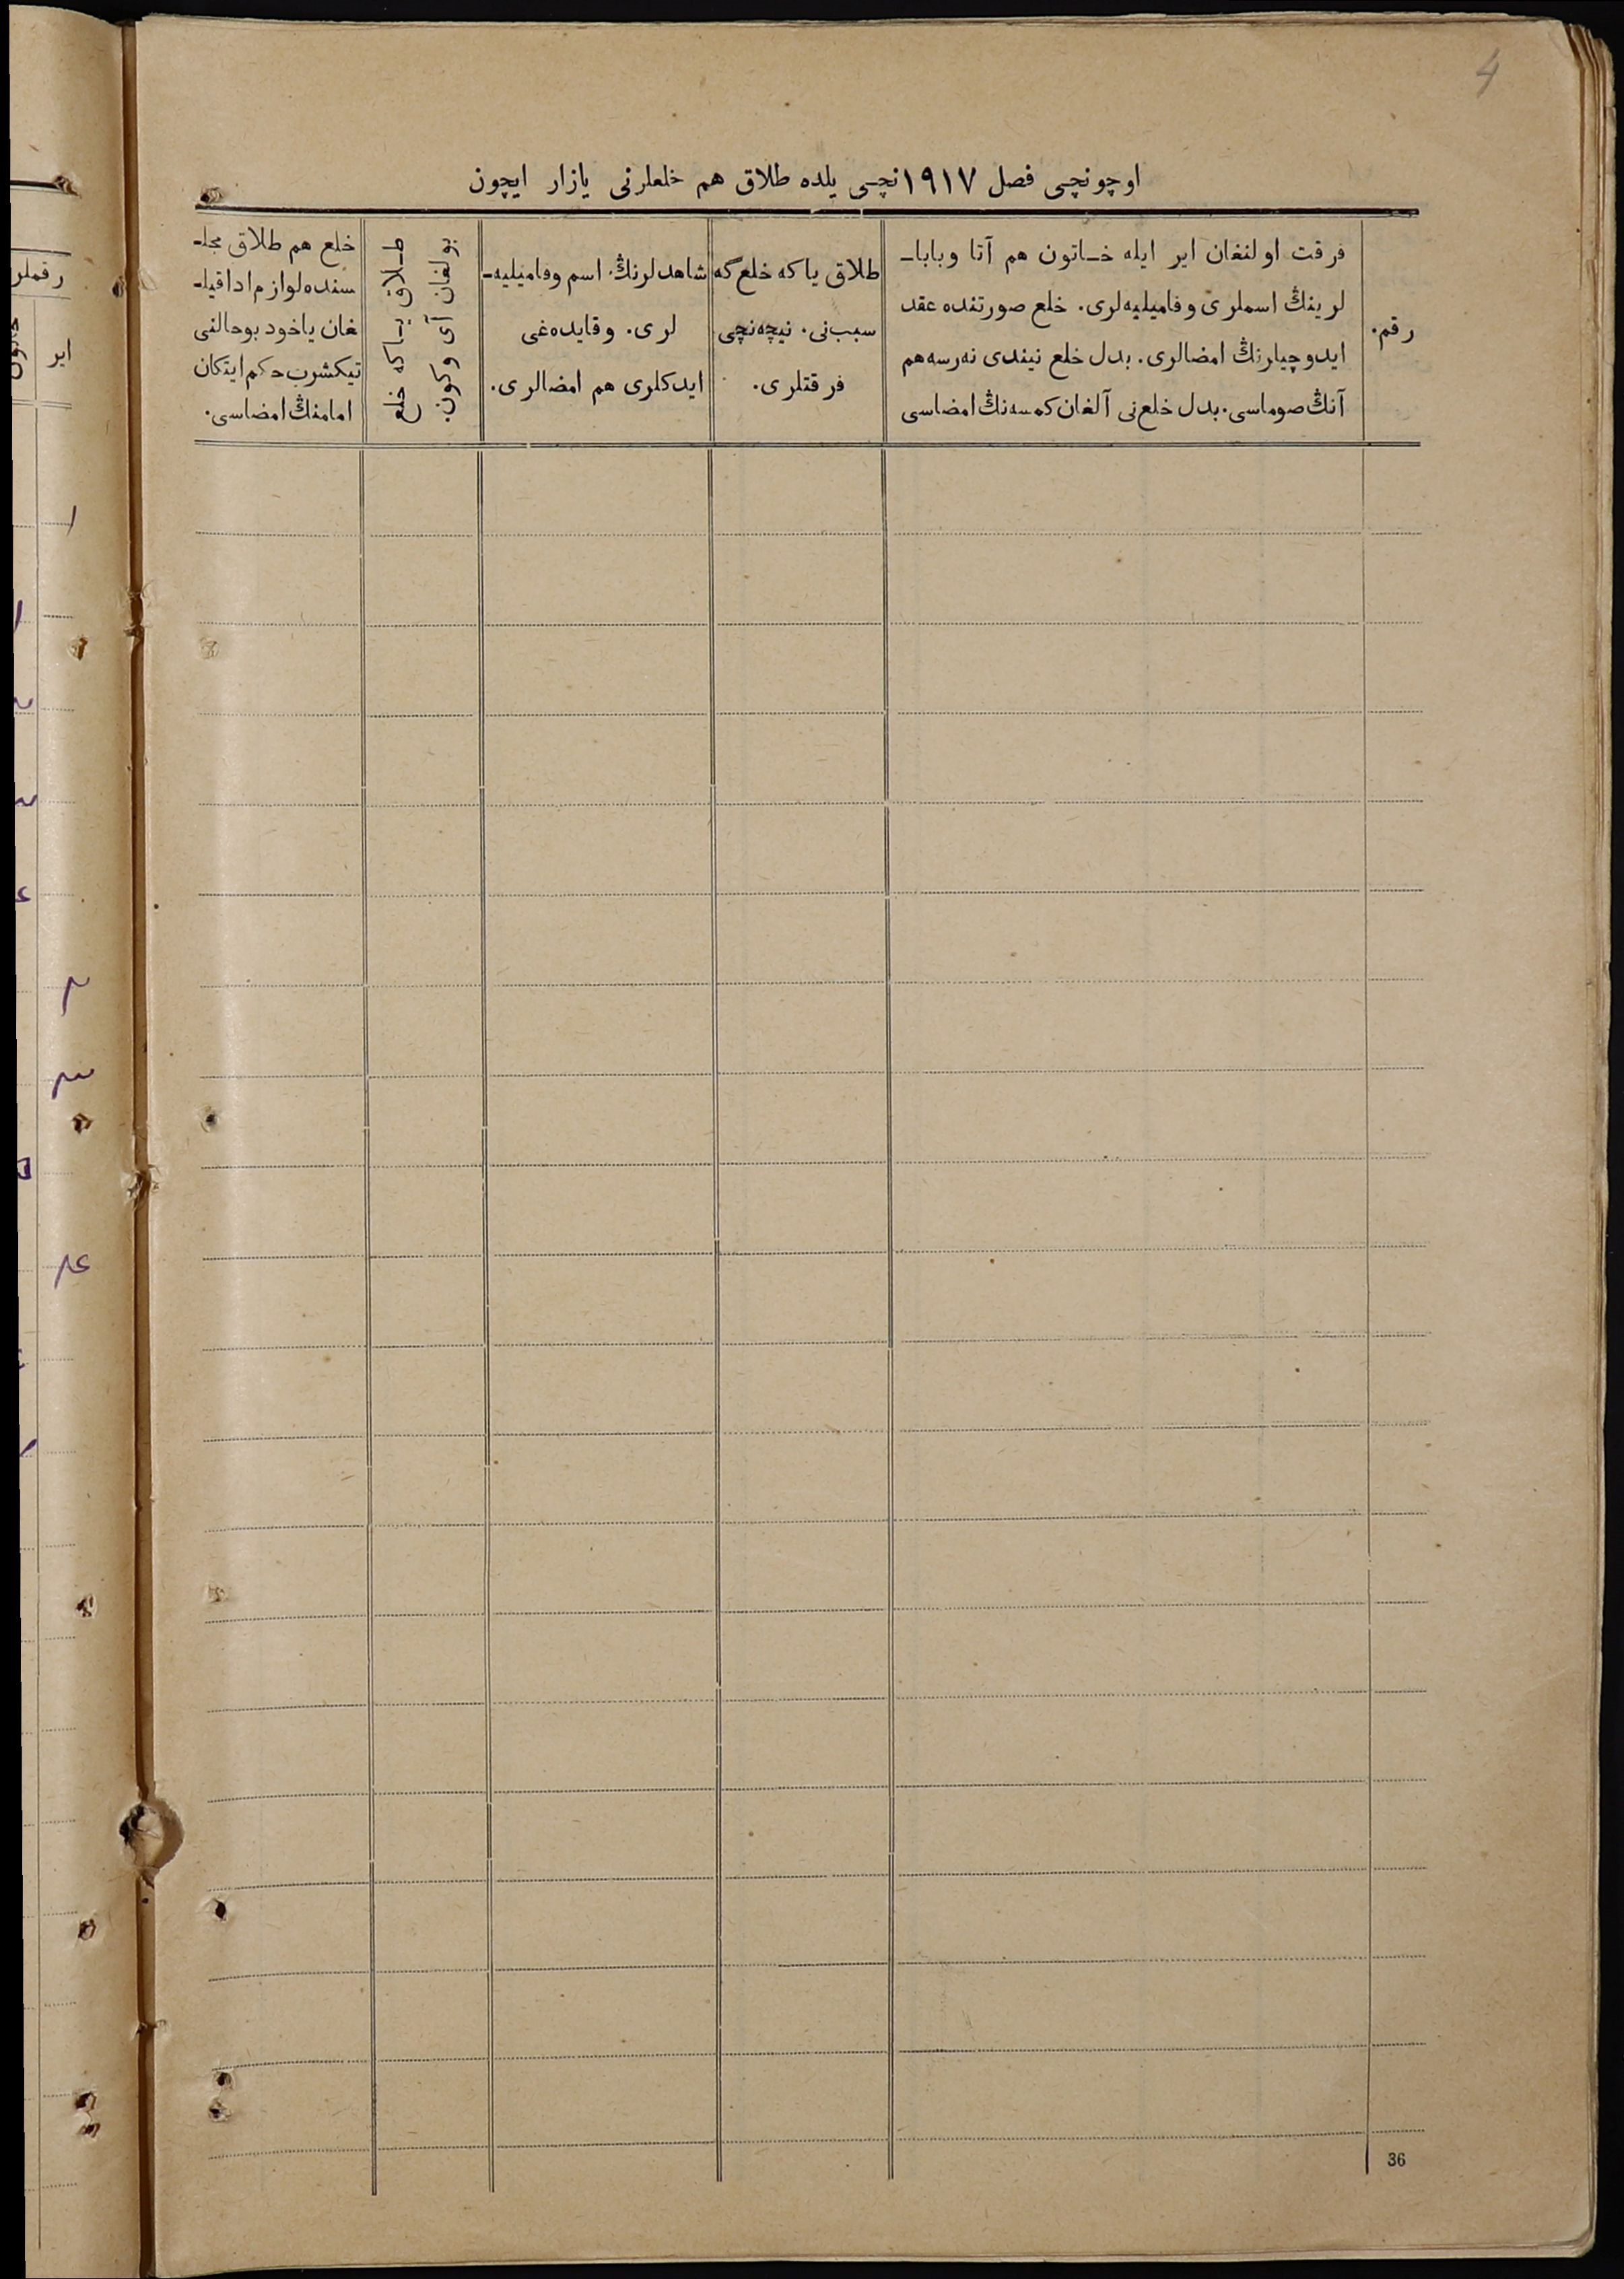 4
اوچونچی فصل ١٩١٧نچی يلده طلاق هم خلعلرنی يازار ايچون
رقم.
فرقت اولنغان اير ايله خـاتون هم آتا وباباـ
لرينڭ اسملری وفاميليه‌لری. خلع صورتنده عقد
ايدوچيلرنڭ امضالری. بدل خلع نيندی نه‌رسه هم
آنڭ صوماسی. بدل خلع‌نی آلغان كمسه‌نڭ امضاسی
طلاق ياكه خلع‌گه
سبب‌نی. نيچه‌نچی
فرقتلری.
شاهدلرنڭ اسم وفاميليه‌ـ
لری. وقايده‌غی
ايدكلری هم امضالری.
طـلاق يـاكه خلع
بولغان آی وكون.
خلع هم طلاق مجلـ
سنده لوازم ادا قيلـ
غان ياخود بوحالنی
تيكشرب حكم ايتكان
امامنڭ امضاسی.
36
رقملر
اير
١
٢
٣
٤